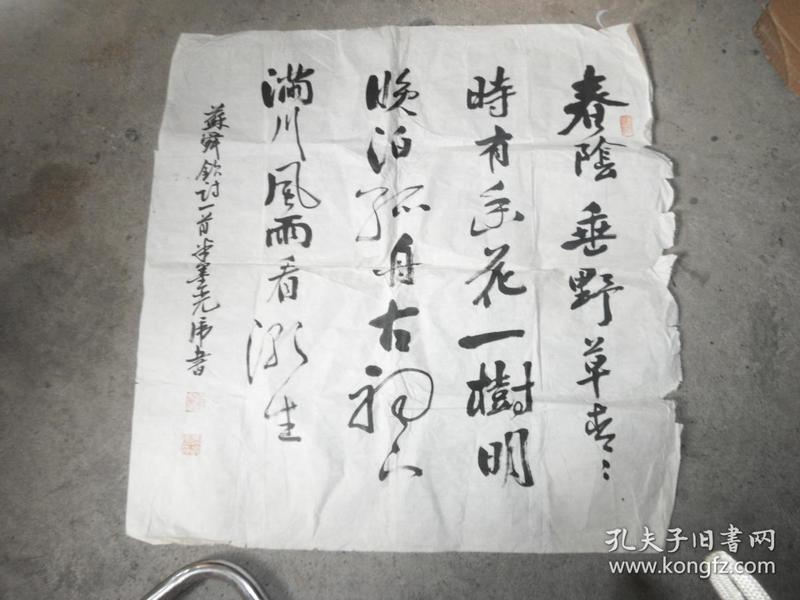 春陰垂野草青〻
時有幽花一樹明
晚泊孤舟古祠下
滿川風雨看潮生
蘇舜欽詩一首
書
孔夫子旧书网
www.kongfz.com